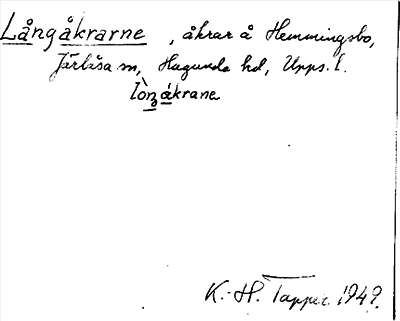 Långåkrarne, åkrar å Hemmingsbo,
Järlåsa sn, Hagunda hd, Upps. l.
lòŋåkrane
K.-H. Tapper 1949.